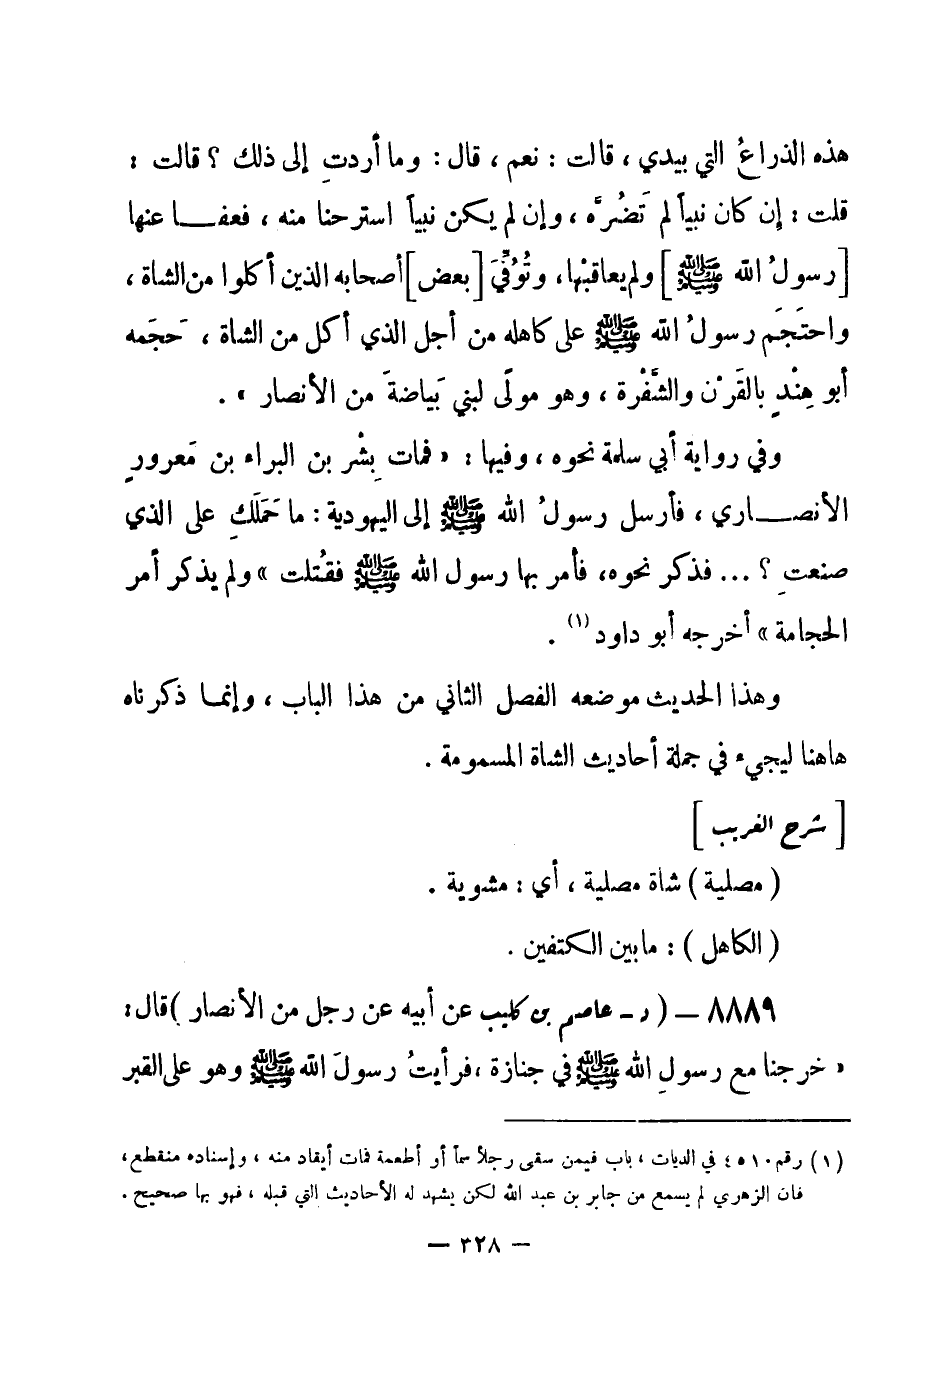 هذه الذراعُ التي بيدي ، قالت : نعم ، قال : وما أردتِ إلى ذلك ؟ قالت :
قلت : إن كان نبياً لم تَضُرَّه ، وإن لم يكن نبياً استرحنا منه ، فعفـــا عنها
[ رسولُ الله ﷺ ] ولم يعاقبْها، وتُوُفِّيَ [ بعض ] أصحابه الذين أكلوا من الشاة ،
واحتَجَم رسولُ الله ﷺ على كاهله من أجل الذي أكل من الشاة ، حَجَمه
أبو هِنْدٍ بالقَرْن والشَّفْرة ، وهو مولًى لبني بَياضةَ من الأنصار » .
وفي رواية أبي سلمة نحوه ، وفيها : « فمات بِشْر بن البراء بن مَعرورٍ
الأنصـــاري ، فأرسل رسولُ الله ﷺ إلى اليهودية : ما حَمَلَكِ على الذي
صنعتِ ؟ ... فذكر نحوه، فأمر بها رسول الله ﷺ فقُتلت » ولم يذكر أمر
الحجامة » أخرجه أبو داود (١) .
وهذا الحديث موضعه الفصل الثاني من هذا الباب ، وإنمـا ذكرناه
هاهنا ليجيء في جملة أحاديث الشاة المسمومة .
[ شرح الغريب ]
( مصلية ) شاة مصلية ، أي : مشوية .
( الكاهل ) : ما بين الكتفين .
٨٨٨٩ – ( د - عاصم بن كليب عن أبيه عن رجل من الأنصار ) قال :
« خرجنا مع رسولِ الله ﷺ في جنازة ، فرأيتُ رسولَ الله ﷺ وهو على القبر
(١) رقم ٤٥١٠ في الديات ، باب فيمن سقى رجلاً سماً أو أطعمة فمات أيقاد منه ، وإسناده منقطع،
فان الزهري لم يسمع من جابر بن عبد الله لكن يشهد له الأحاديث التي قبله ، فهو بها صحيح .
– ٣٢٨ –